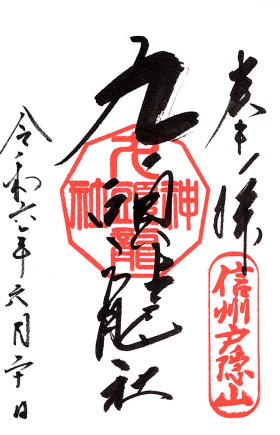 奉拝
信州戸隠山
九頭龍社
九頭龍神社
令和六年六月二十日